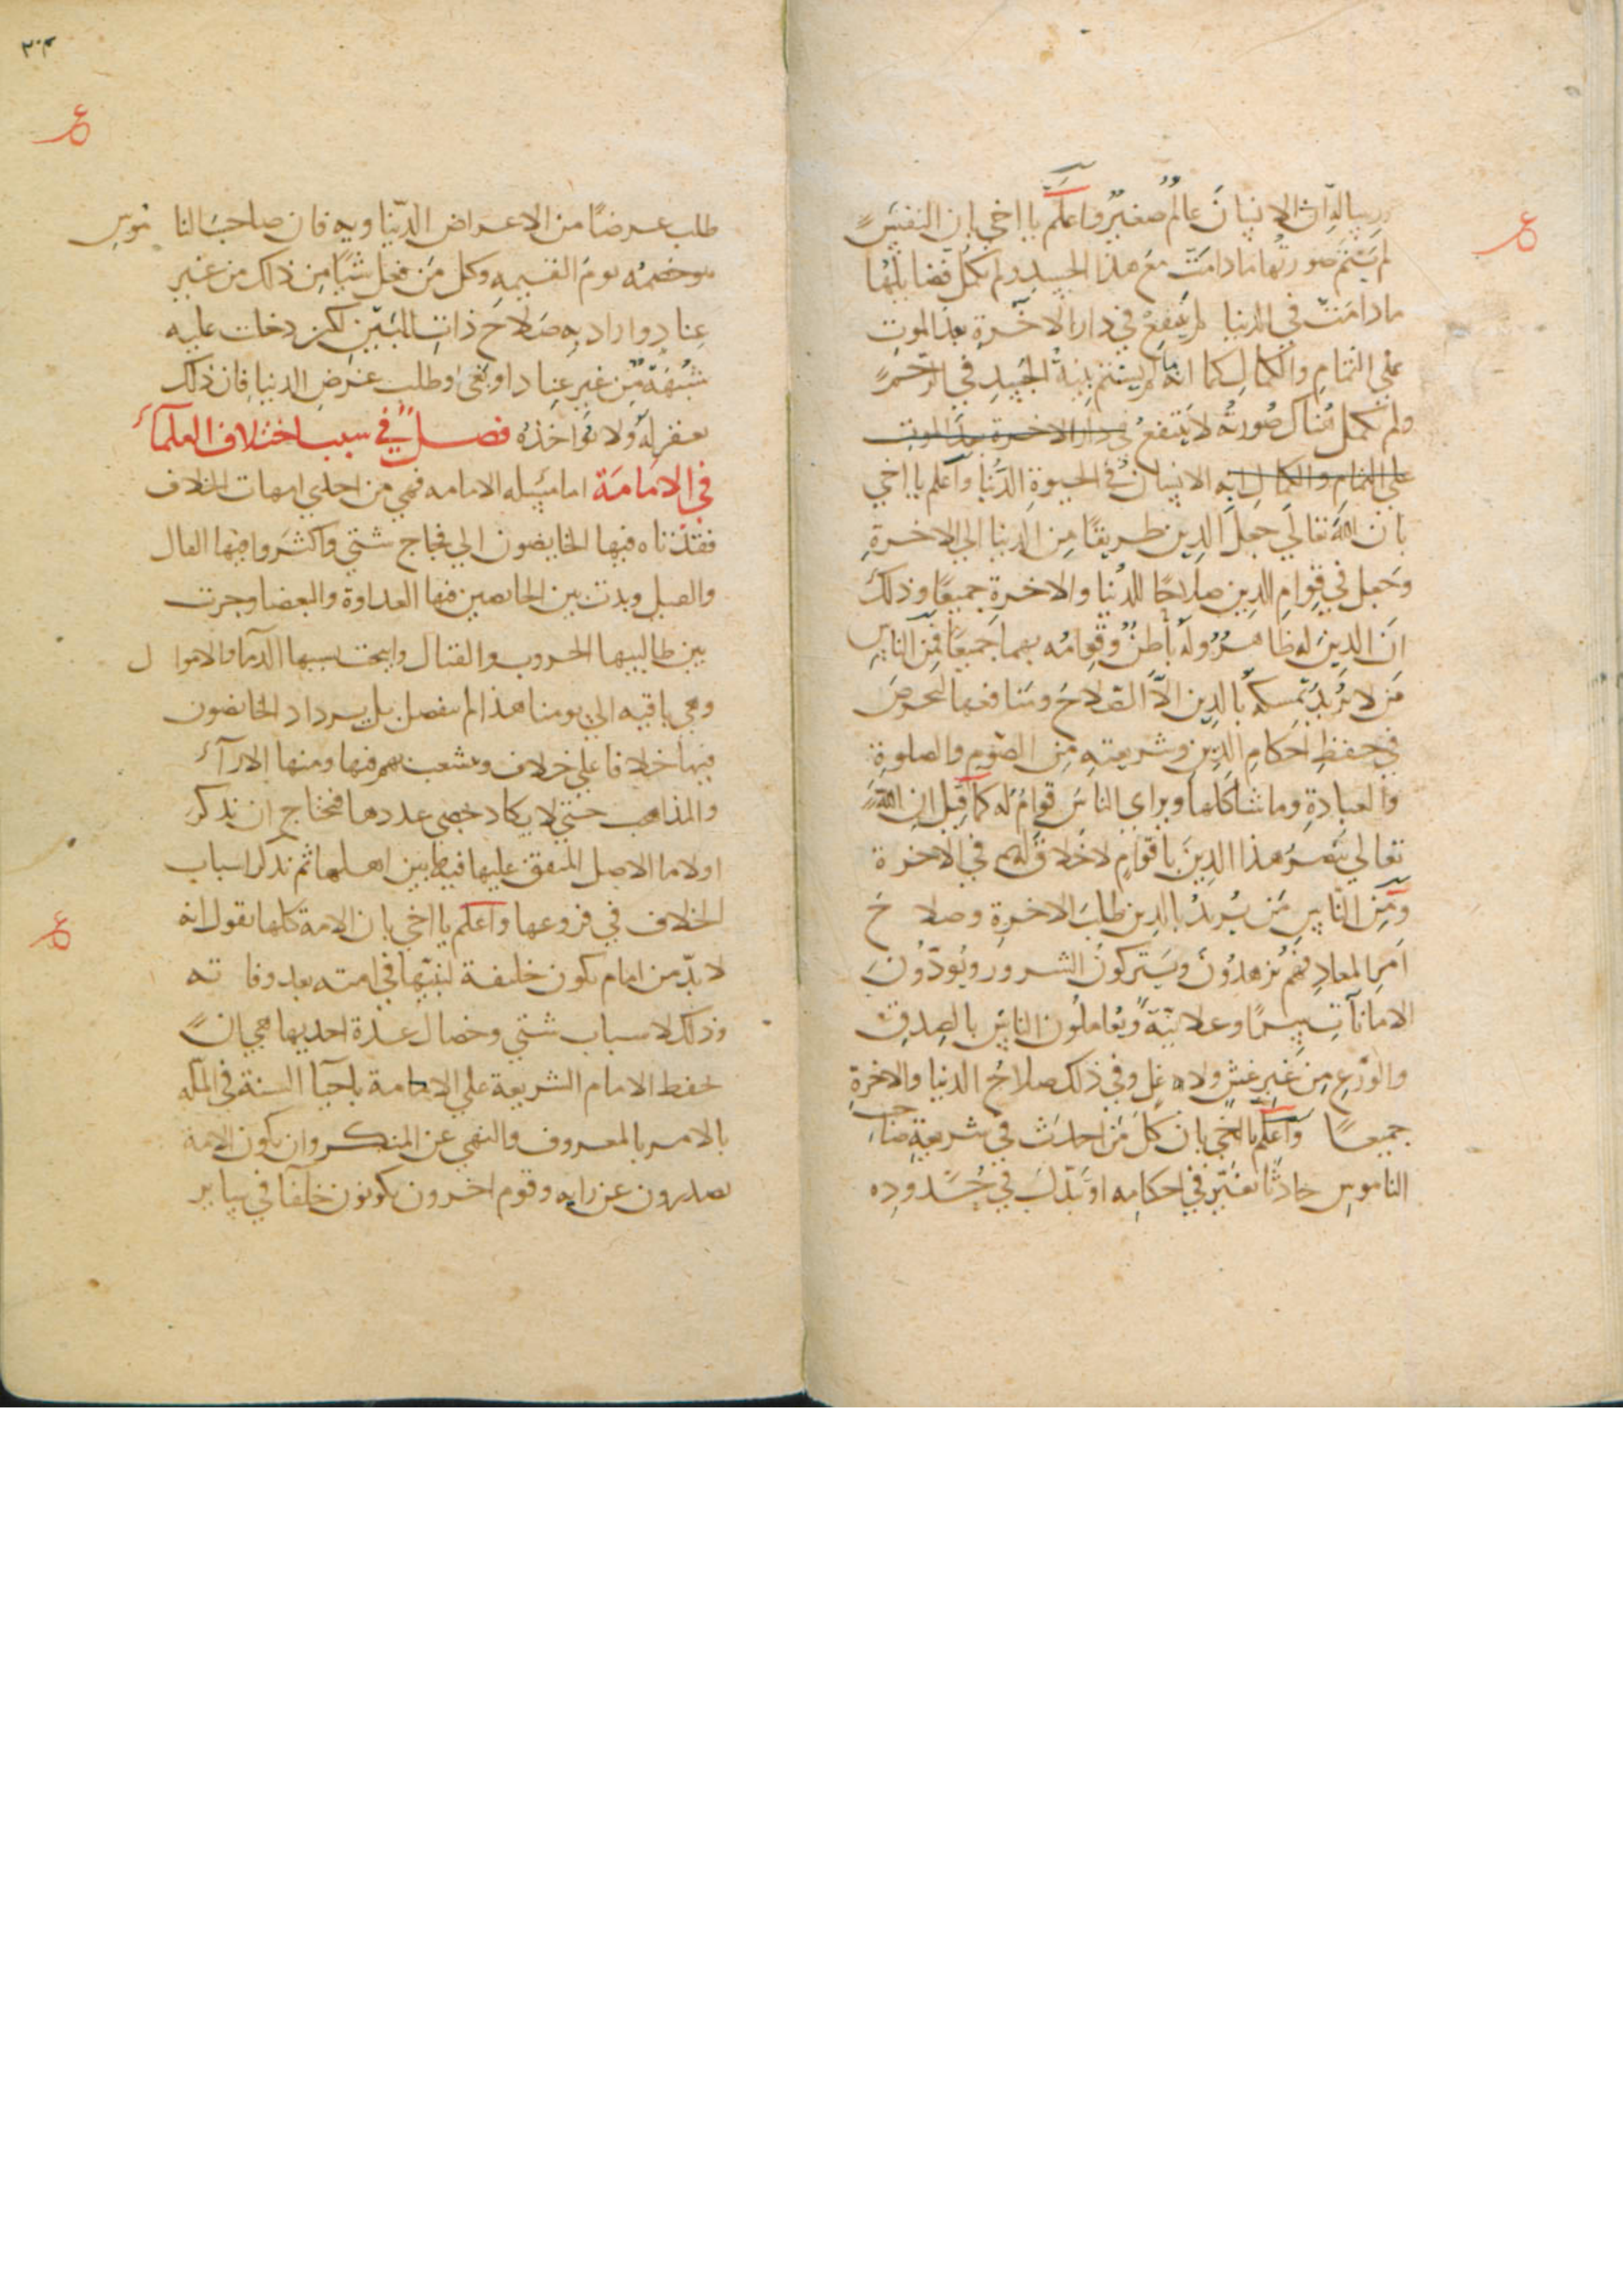 رسالة ان الانسان عالم صغير واعلم يا اخي بان النفس
لم يستتم صورتها ما دامت مع هذا الجسد ولم تكمل فضائلها
ما دامت في الدنيا لم ينتفع في دار الاخرة بعد الموت
علي التمام والكمال كما انه ما لم يستتم بنية الجسد في الرحم
ولم تكمل هناك صورته لا ينتفع في دار الاخرة بعد الموت
علي التمام والكمال به الانسان في الحيوة الدنيا واعلم يا اخي
بان الله تعالي جعل الدين طريقا من الدنيا الي الاخرة
وجعل في قوام الدين صلاحا للدنيا والاخرة جميعا وذلك
ان الدين له ظاهر وله باطن وقوامه بهما جميعا فمن الناس
من لا يريد تمسكه بالدين الا الصلاح ومنافعها لتحرص
في حفظ احكام الدين وشريعته من الصوم والصلوة
والعبادة وما شاكلها ويراي الناس قوام له كما قيل ان الله
تعالي ينصر هذا الدين باقوام لا خلاق لهم في الاخرة
ومن الناس من يريد بالدين طلب الاخرة وصلاح
امر المعاد فهم يزهدون ويتركون الشرور ويودون
الامانات سرا وعلانية ويعاملون الناس بالصدق
والورع من غير غش ولا غل وفي ذلك صلاح الدنيا والاخرة
جميعا واعلم يا اخي بان كل من احدث في شريعة صاحب
الناموس حادثا يغير في احكامه او يبدل في حدوده
٢٠٣
طلب عرضا من الاعراض الدنياويه فان صاحب الناموس
هو خصمه يوم القيمه وكل من فعل شيا من ذلك من غير
عناد واراد به صلاح ذات البين لكن دخلت عليه
شبهة من غير عناد او بغي او طلب عرض الدنيا فان ذلك
يغفر له ولا يواخذه فصل في سبب اختلاف العلماء
في الامامة اما مسيله الامامه فهي من احدي امهات الخلاف
فقد تاه فيها الخايضون الي فجاج شتي واكثروا فيها القال
والقيل وبدت بين الخايضين فيها العداوة والبغضا وجرت
بين طالبيها الحروب والقتال وابيحت بسببها الدما والاموال
وهي باقيه الي يومنا هذا لم تنفصل بل يزداد الخائضون
فيها خلافا علي خلاف وتشعب بهم فيها ومنها الاراء
والمذاهب حتي لا يكاد تحصي عددها فنحتاج ان نذكر
اولا ما الاصل المتفق عليها فيما بين اهلها ثم نذكر اسباب
الخلاف في فروعها واعلم يا اخي بان الامة كلها تقول انه
لا بد من امام يكون خليفة لنبيها في امته بعد وفاته
وذلك لاسباب شتي وخصال عدة احديها هي ان
يحفظ الامام الشريعة علي الامة باحيا السنة في المله
بالامر بالمعروف والنهي عن المنكر وان تكون الامة
يصدرون عن رايه وقوم اخرون يكونون خلفا في ساير